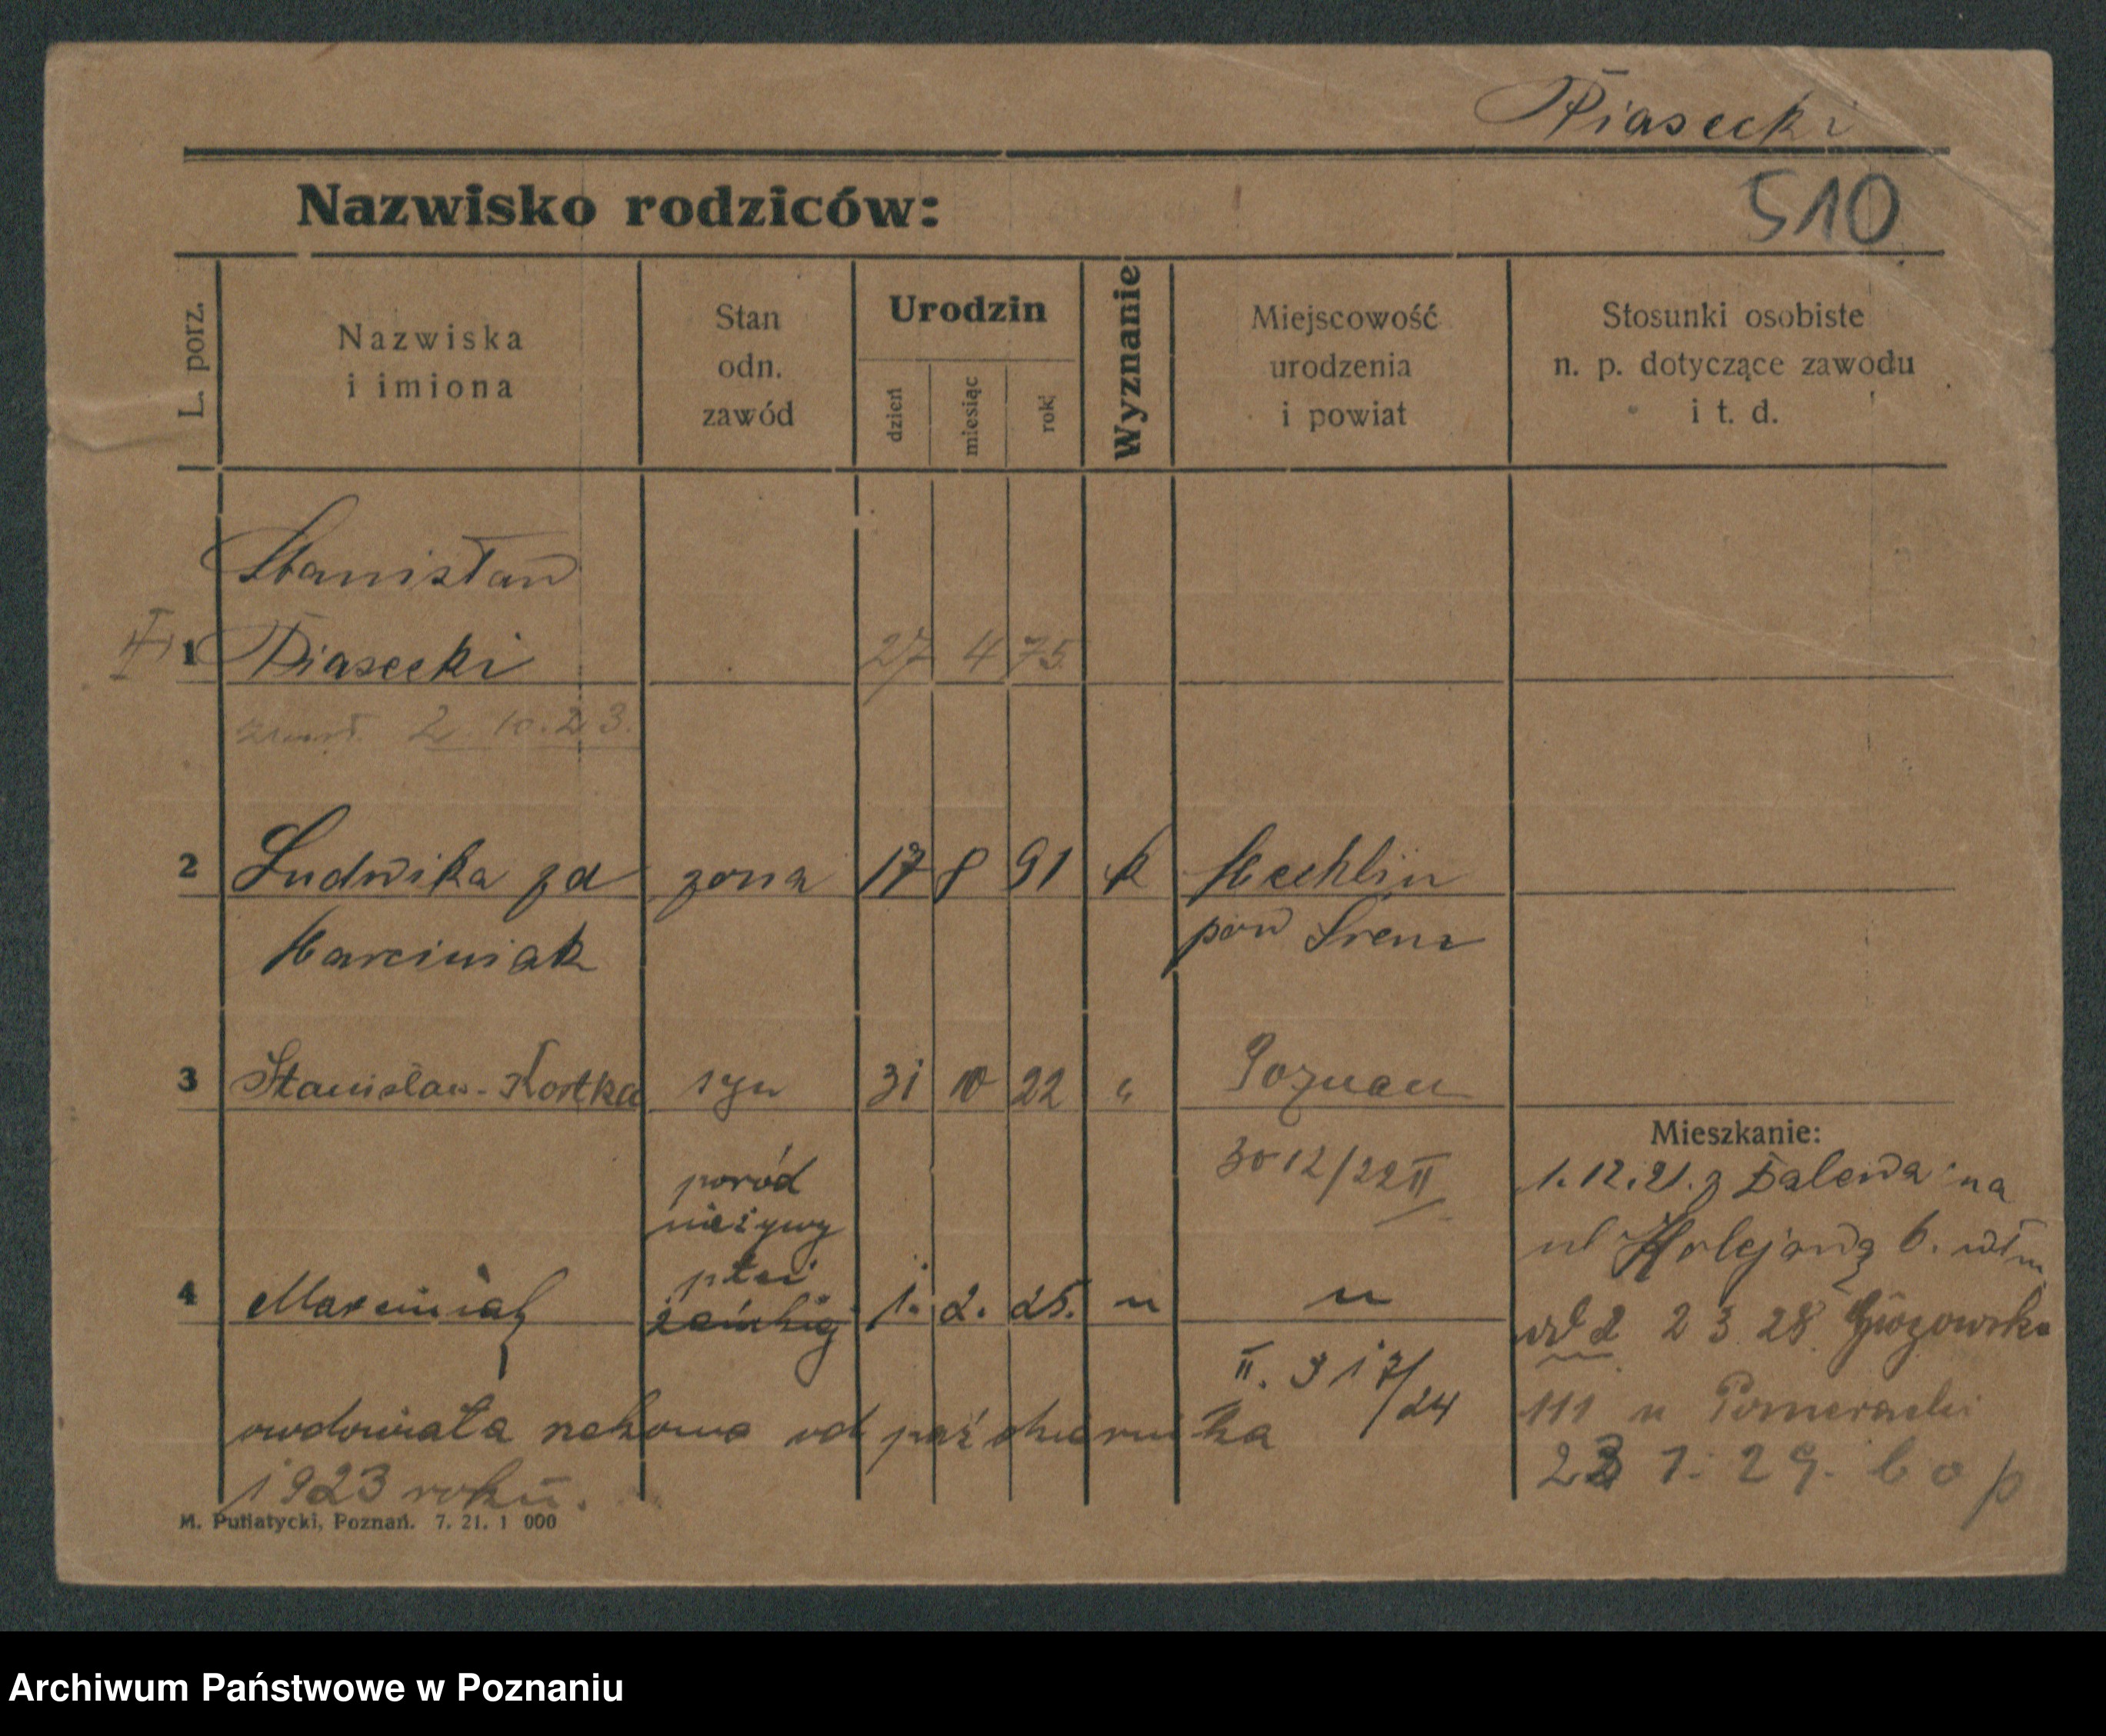 Piasecki
Nazwisko rodziców:
510
L. porz.
Nazwiska
i imiona
Stan
odn.
zawód
Urodzin
dzień
miesiąc
rok
Wyznanie
Miejscowość
urodzenia
i powiat
Stosunki osobiste
n. p. dotyczące zawodu
i t. d.
Stanisław
1 Piasecki 27 4 75
zmarł. 2. 10. 23.
2 Ludwika zd żona 17 8 91 k Mechlin
Marciniak pow Śrem
3 Stanisław-Kostka syn 31 10 22 " Poznań
3012/22 II
Mieszkanie:
1. 12. 21. z Dalewa na
ul Kolejową 6.
poród
nieżywy
płci
4 Marciniak żeńskiej 1. 2. 25. " "
2 3 28
II. 317/24
111 u
owdowiała od października
1923 roku.
1. 29. b o p
M. Putiatycki, Poznań. 7. 21. 1 000
Archiwum Państwowe w Poznaniu